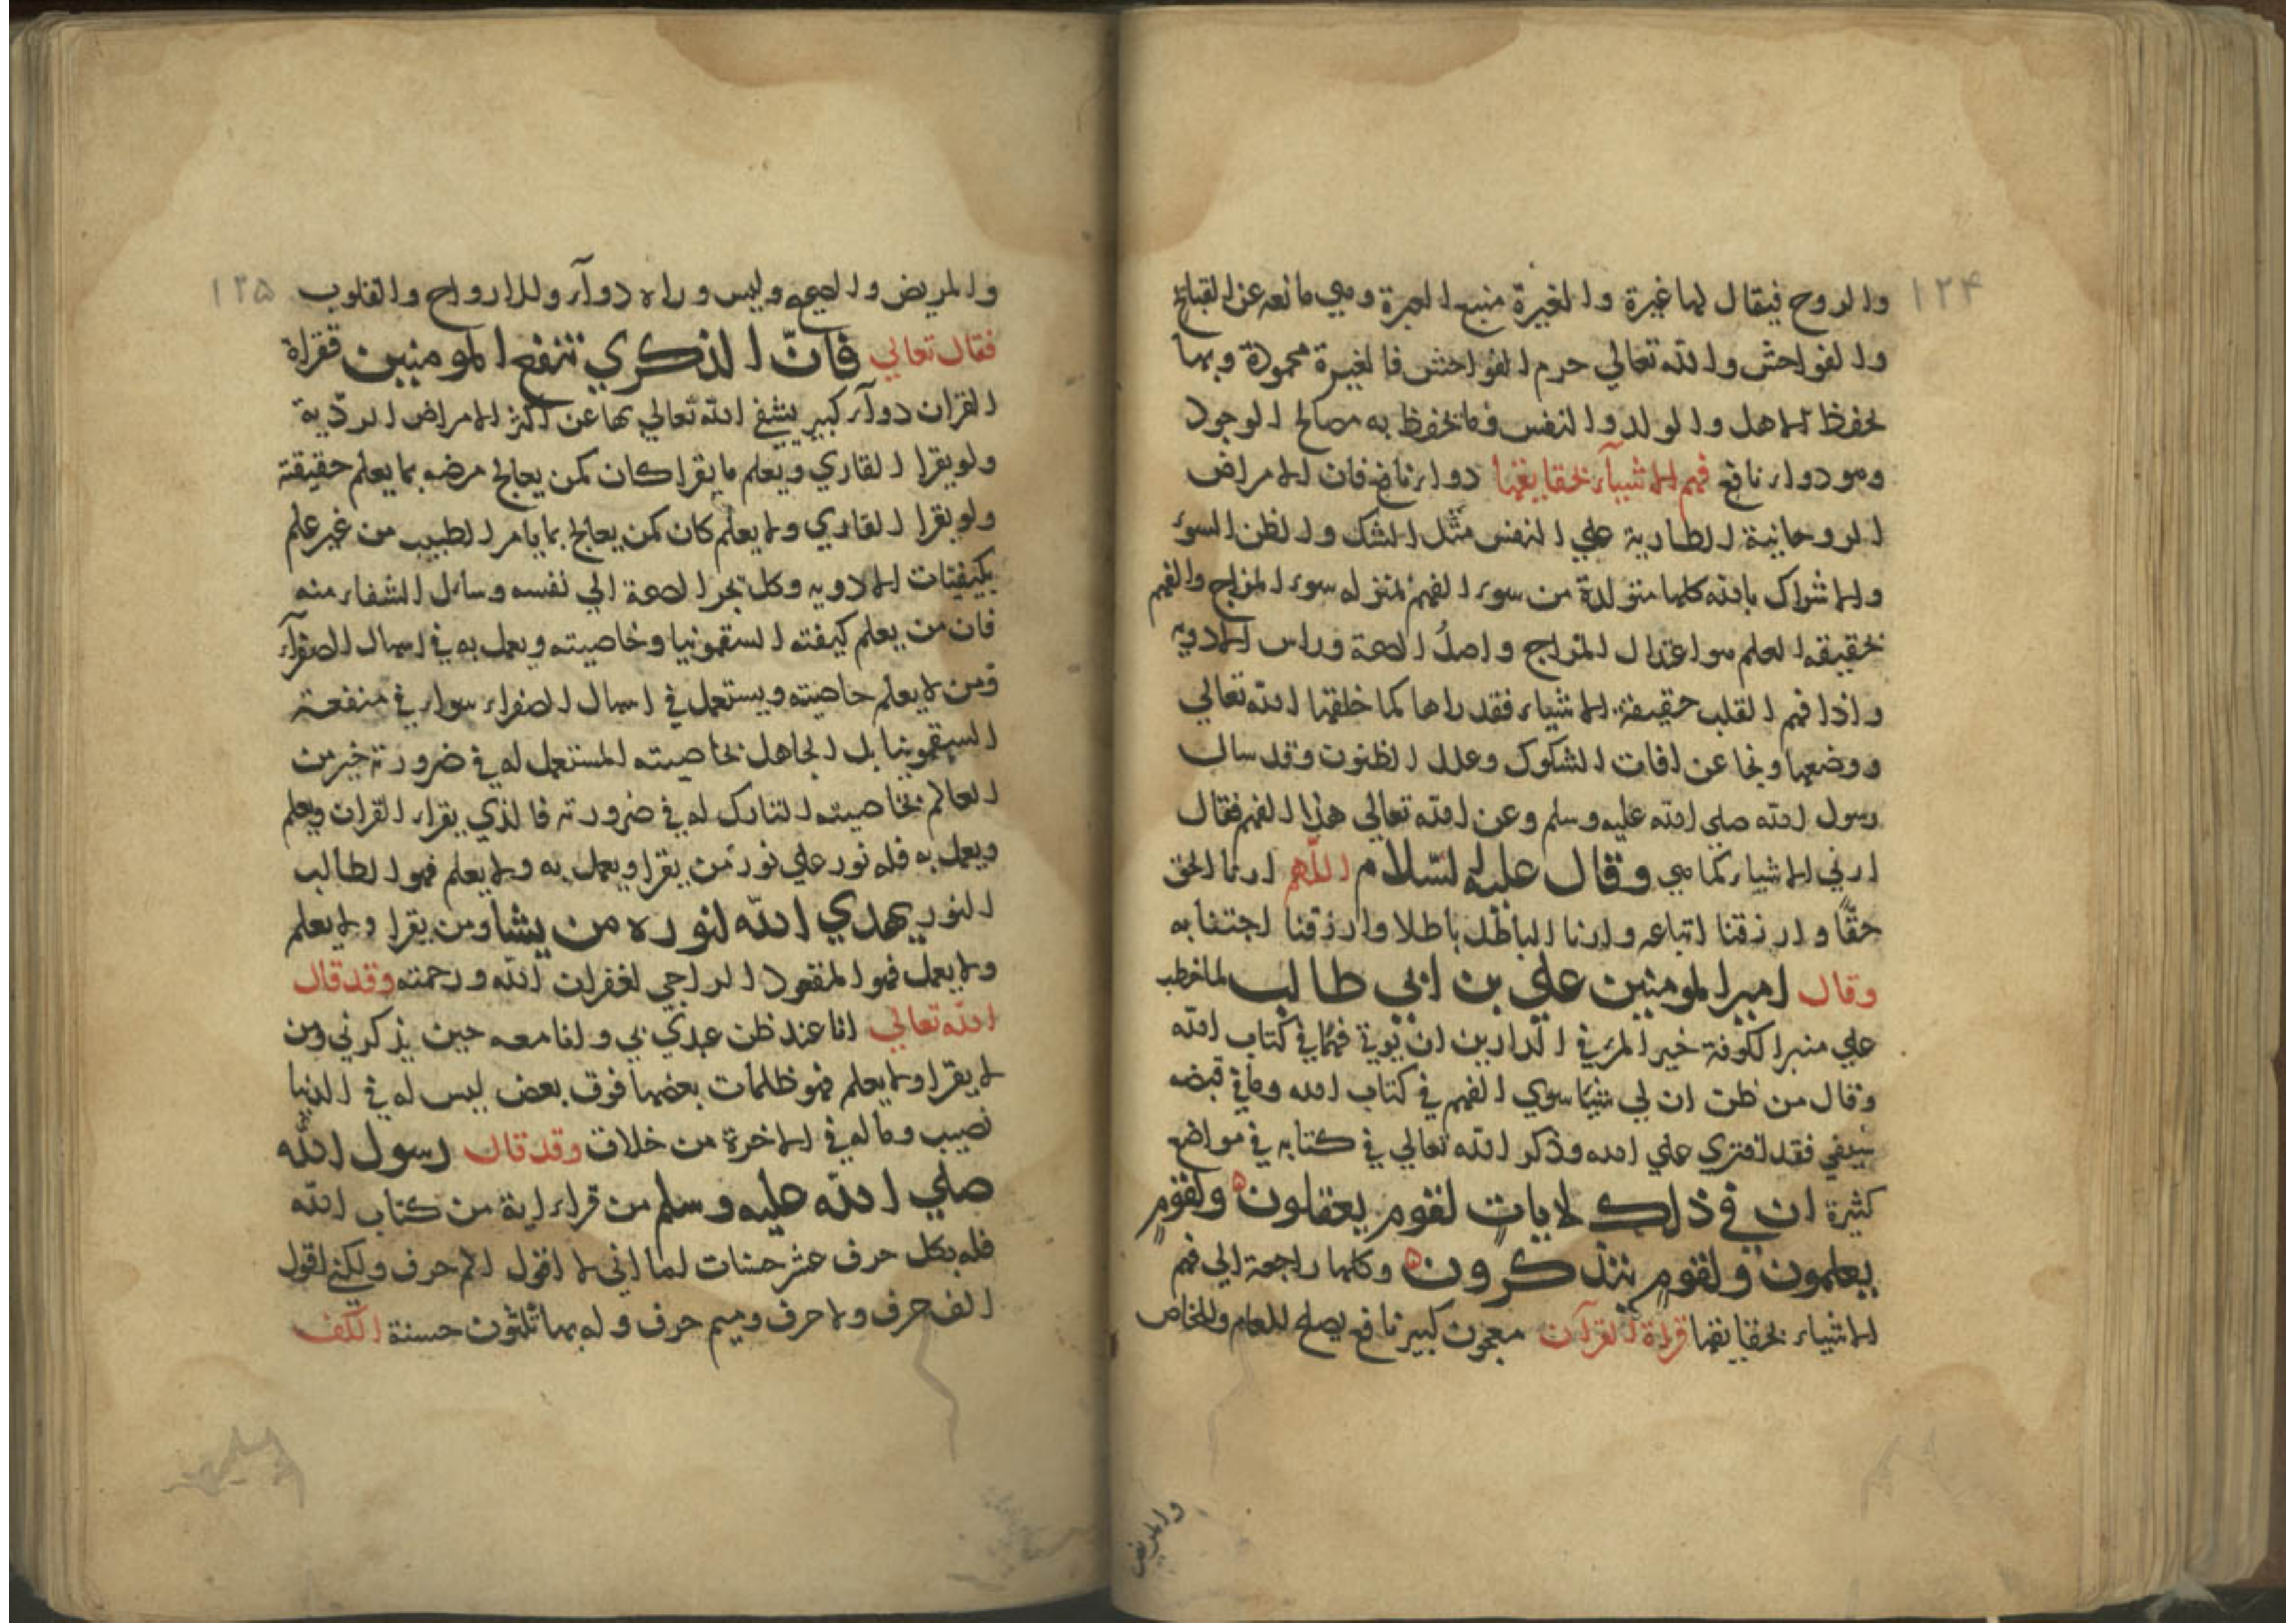 ١٢۴
والروح فيقال لها غيرة والغيرة منبع العبرة وهي مانعه عن القبائح
والفواحش والله تعالي حرم الفواحش فالغيرة محمودة وبها
يحفظ الاهل والولد والنفس وما يحفظ به مصالح الوجود
وهو دواء نافع فهم الاشيآء بحقايقها دواء نافع فان الامراض
الروحانية الطارية علي النفس مثل الشك والظن السوء
والاشراك بالله كلها متولدة من سوء الفهم لمنزله سوء المزاج والفهم
بحقيقه العلم هو اعتدال المزاج واصل الصحة وراس الادويه
واذا فهم القلب حقيقة الاشياء فقد راها كما خلقها الله تعالي
ووضعها ونجا عن افات الشكوك وعلل الظنون وقد سال
رسول الله صلي الله عليه وسلم وعن الله تعالي هذا الفهم فقال
ارني الاشياء كما هي وقال عليه السلام اللهم ارنا الحق
حقّا وارزقنا اتباعه وارنا الباطل باطلا وارزقنا اجتنابه
وقال امير المومنين علي بن ابي طالب لما خطب
علي منبر الكوفة خير المرء في الدارين ان يوتي فهما في كتاب الله
وقال من ظن ان لي شيئا سوي الفهم في كتاب الله وما في قبضه
سيفي فقد افتري علي الله وذكر الله تعالي في كتابه في مواضع
كثيرة ان في ذلك لايات لقوم يعقلون ولقوم
يعلمون ولقوم يتذكرون وكلها راجعة الي فهم
الاشياء بحقايقها قراة القرآن معجون كبير نافع يصلح للعام والخاص
والمريض
١٢۵
والمريض والصحيح وليس وراه دوآء وللارواح والقلوب
فقال تعالي فانّ الذكري تنفع المومنين فقراة
القران دوآء كبير يشفي الله تعالي بها عن اكثر الامراض الرديّة
ولو يقرا القاري ويعلم ما يقرا كان كمن يعالج مرضه بما يعلم حقيقته
ولو يقرا القاري ولا يعلم كان كمن يعالج بما يامر الطبيب من غير علم
بكيفيتات الادويه وكل يجر الصحة الي نفسه وسائل الشفاء منه
فان من يعلم كيفته السقمونيا وخاصيته ويعمل به في اسهال الصفرآء
ومن لا يعلم خاصيته ويستعمل في اسهال الصفراء سواء في منفعة
السقمونيا بل الجاهل بخاصيته المستعمل له في ضرورته خير من
العالم بخاصيته التارك له في ضرورته فالذي يقراء القران ويعلم
ويعمل به فله نور علي نور من يقرا ويعمل به ولا يعلم فهو الطالب
النور يهدي الله لنوره من يشا ومن يقرا ولا يعلم
ولا يعمل فهو المقعود الراجي لغفران الله ورحمته وقد قال
الله تعالي انا عند ظن عبدي بي وانا معه حين يذكرني ومن
لا يقرا ولا يعلم فهو ظلمات بعضها فوق بعض ليس له في الدنيا
نصيب وماله في الاخرة من خلاق وقد قال رسول الله
صلي الله عليه وسلم من قراء اية من كتاب الله
فله بكل حرف عشر حسنات اما اني لا اقول الم حرف ولكني اقول
الف حرف ولا حرف وميم حرف وله بها ثلثون حسنة الكف